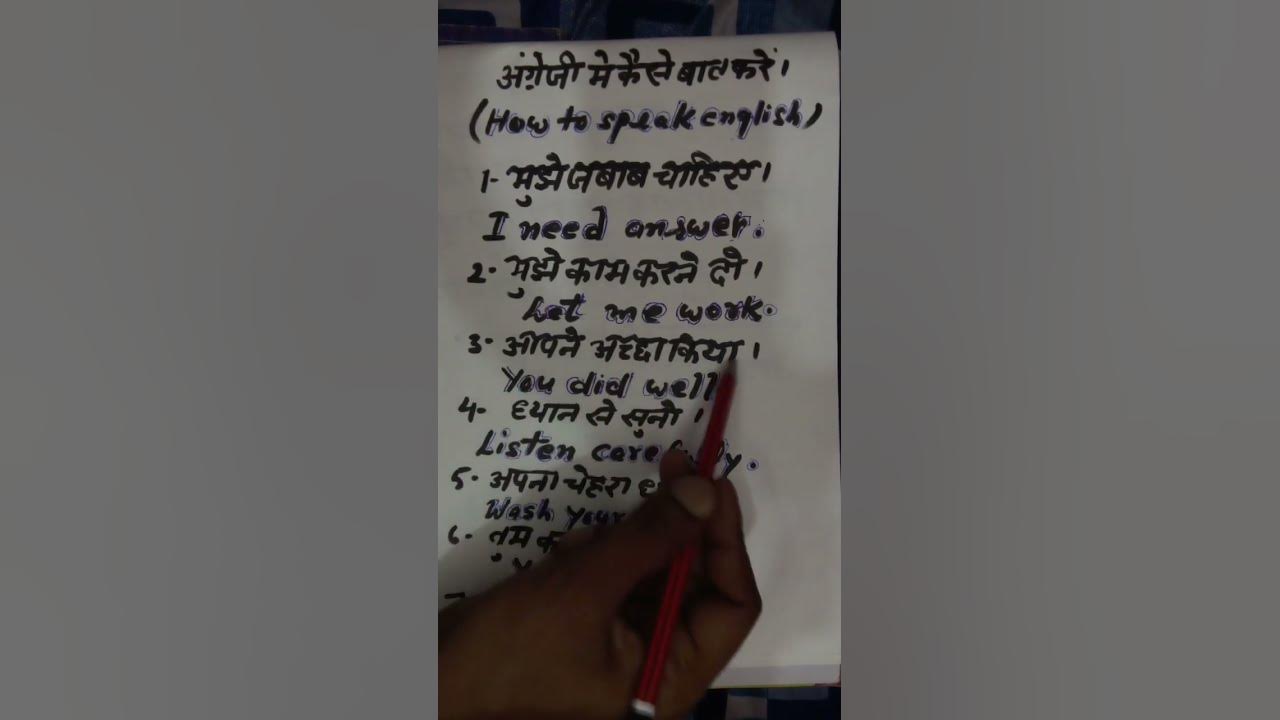 अंग्रेजी मे कैसे बात करें।
(How to speak english)
1- मुझे जबाब चाहिए।
I need answer.
2- मुझे काम करने दो।
Let me work.
3- आपने अच्छा किया।
You did well
4- ध्यान से सुनो ।
Listen carefully.
5- अपना चेहरा
Wash your
6- तुम